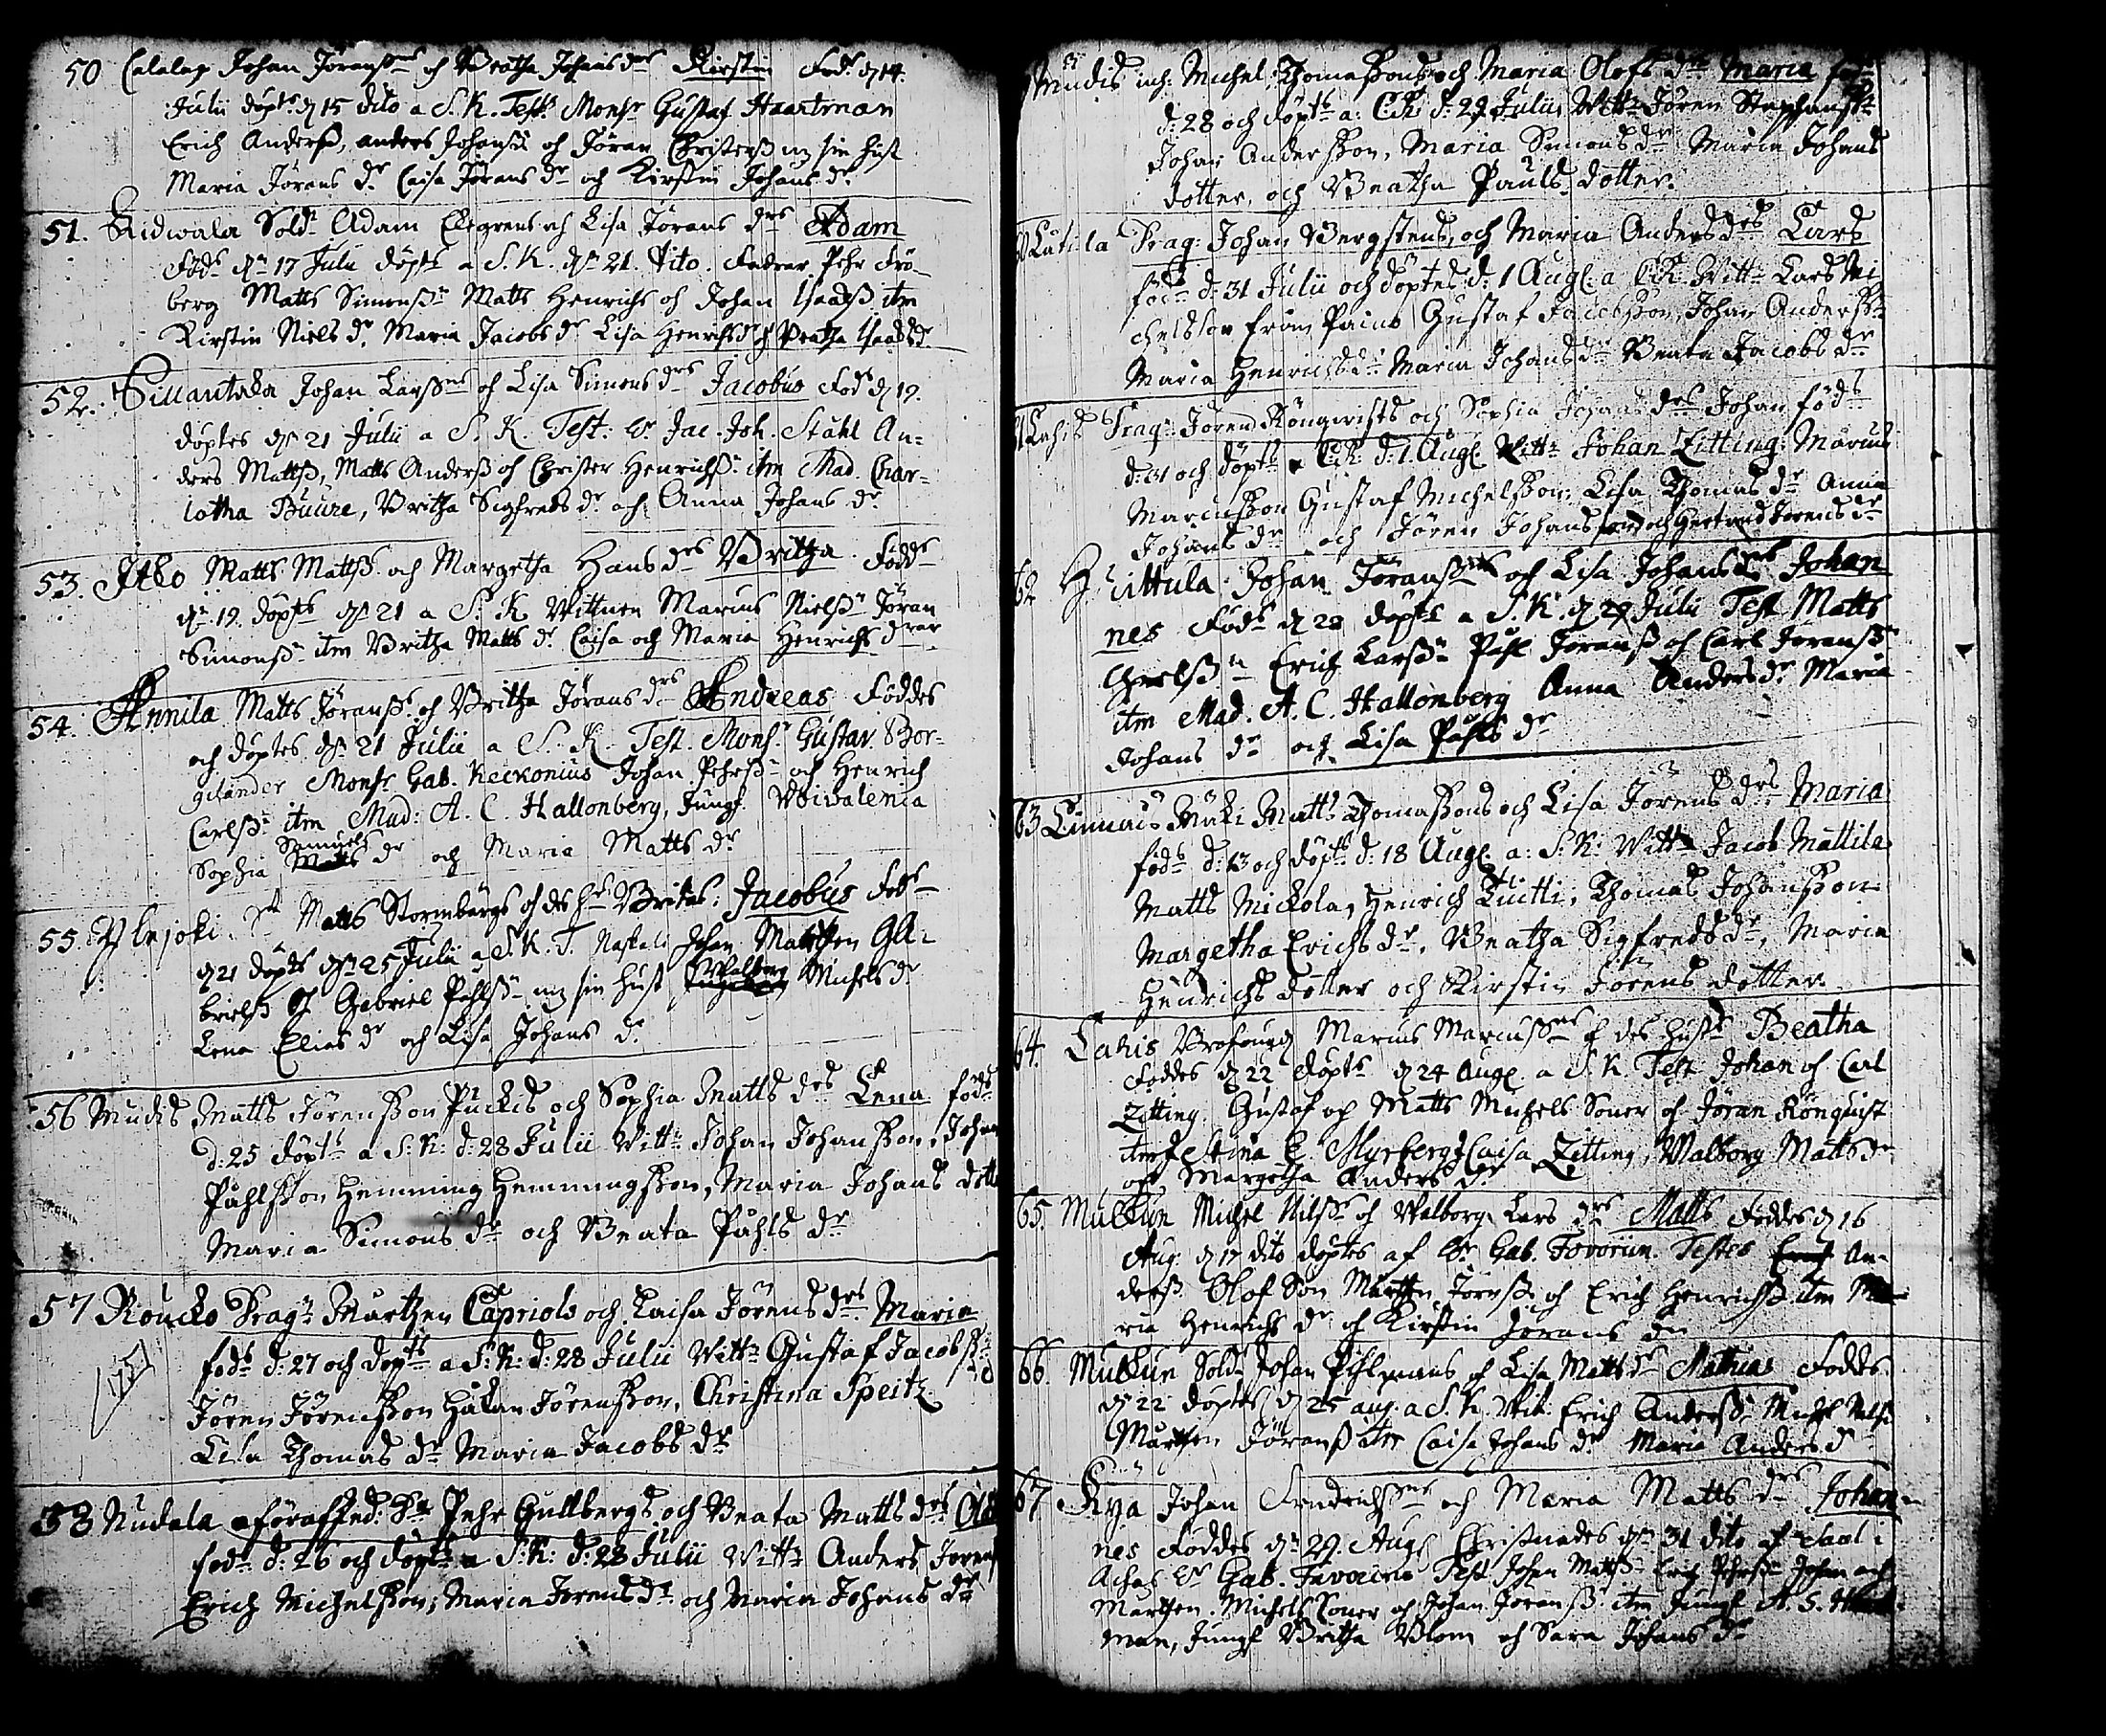 50 Calalax Johan Jöranssns och Beatha Johans drs Kirstin Föd. d. 14.
Julii döpts d 15 dito a S. K. Test. Monsr Gustaf Haartman
Erich Anderss, anders Johanss och Jöran Christerss m sin hust
Maria Jörans dr Caisa Jörans dr och Kirstin Johans dr
51. Kidwala Sold. Adam Elegrens och Lisa Jörans drs Adam
Föds dn 17 Julii döpts a S. K. dn 21. dito. Fadrar Pehr Frö-
berg Matts Simonssn Matts Henrichs och Johan Isaacss itm
Kirstin Niels dr Maria Jacobs dr Lisa Henrichsdr och Beatha Isaacs dr
52. Sillantaka Johan Larssns och Lisa Simons drs Jacobus Föds d 19.
döptes dn 21 Julii a S. K. Test: Hr Jac. Joh. Ståhl An-
ders Mattss, Matts Anderss och Christer Henrichssn itm Mad. Char-
lotha Buure, Britha Sigfreds dr och Anna Johans dr
53. Itko Matts Mattss. och Margetha Hans drs Britha. Föddes
dn 19. döpts dn 21 a S. K. Wittnen Marcus Nielssn Jöran
Simonssn itm Britha Matts dr Caisa och Maria Henrichs drar
54. Annila Matts Jöranss. och Britha Jörans drs Andreas Föddes
och döptes dn 21 Julii a S. K. Test. Monsr Gustav Bor-
gelander Monsr Gab. Keckonius Johan Pehrssn och Henrich
Carlssn itm Mad: A. C. Hallonberg, Jungf. Woivalenia
Sophia Samuels dr och Maria Matts dr
55. Ylejoki Matts Stormbergs och des hu Britas: Jacobus Föds
d 21 döpts dn 25 Julii a S. K. T. Johan Matsson Ga-
brielss och Gabriel Påhlssn m sin hust Walborg Michels dr
Lena Elias dr och Lisa Johans dr
56 Mudis Matts Jörensson Puckis och Sophia Matts drs Lena föds
d: 25 döpts a S: K: d: 28 Julii Wittn Johan Johansson, Johan
Påhlsson Hemming Hemmingsson, Maria Johans dott
Maria Simons dr och Beata Påhls dr
57 Roucko Dragn Mårthen Capriols och Caisa Jörens drs Maria
föds d: 27 och döpts a S: K: d: 28 Julii Wittn Gustaf Jacobsson
Jören Jörensson Håkan Jörensson, Christina Speitz
Lisa Thomas dr Maria Jacobs dr
58 Nudala Pehr Gullbergs och Beata Matts drs
föds d: 26 och döpts a S: K: d: 28 Julii Wittn Anders Jörens
Erich Michelsson, Maria Jörens dr och Maria Johans dr
Mudis inh: Michel Thomassons och Maria Olofs drs Maria föds
d: 28 och döpts a: S: K: d: 29 Julii Wittn Jören Staphanssn
Johan Andersson, Maria Simons dr Maria Johans
dotter, och Beatha Pauls dotter.
Lutila Drag: Johan Bergstens, och Maria Anders drs Lars
föds d: 31 Julii och döptes d: 1 Aug. a S: K: Wittn Lars Mi
chelsson från Paino Gustaf Jacobsson, Johan Anderssn
Maria Henrichsdr Maria Johans dr Beata Jacobs dr
Lahis Dragn Jören Rönqwists och Sophia Johans drs Johan föds
d: 31 och döpts a S: K: d: 1 Aug. Wittn Johan Zitting, Marcus
Marcusson Gustaf Michelsson, Lisa Thomas dr Anna
Johans dr och Jören Johansson och Gertrud Jörens dr
62 Huittula Johan Jöranssns och Lisa Johans drs Johan
nes Föds d 28 döpts a S. K. d 29 Julii Test Matts
Erich Larssn Påhl Jöranss och Carl Jöranssn
itm Mad. A. C. Hallonberg Anna Anders dr Maria
Johans dr och Lisa Påhls dr
63 Linnais Mäki Matts Thomassons och Lisa Jörens drs Maria
föds d: 13 och döpts d: 18 Aug. a: S: K: Wittn Jacob Mattila
Matts Mickola, Henrich Kuitti, Thomas Johansson
Margetha Erichs dr, Beatha Sigfreds dr, Maria
Henrichs dotter och Kirstin Jörens dotter.
64. Lahis Marcus Marcussns och des hust Beatha
Föddes d 22 döpts d 24 Aug. a S. K. Test Johan och Carl
Zitting. Gustaf och Matts Michels Söner och Jöran Rönquist
itm Stina E. Myrberg, Caisa Zitting, Walborg Matts dr
och Margetha Anders dr
65. Mulkun Michel Nilss och Walborg Lars drs Matts Föddes d 16
Aug. d 17 dito döptes af Hr Gab. Fovorin. Testes An-
derss. Olof Son Mårthen Jörss och Erich Henrichss itm Ma-
ria Henrichs dr och Kirstin Jörans dr
66. Mulkun Sold. Johan Pihlmans och Lisa Matts dr Mathias Föddes
d 22 döptes d 25 aug. a S. K. Wit. Erich Anderss Michel Nilss
Mårthen Jöranss itm Caisa Johans dr Maria Anders d
67 Eya Johan Fredrichssns och Maria Matts drs Johan-
nes Föddes dn 29. Aug. Christnades dn 31 dito af Sacel.
Achas Hr Gab. Favorins Test Johan Mattssn Erich Pehrssn Johan och
Mårthen Michels Söner och Johan Jöranss itm Jungf A. S.
man, Jungf Britha Blom och Sara Johans dr